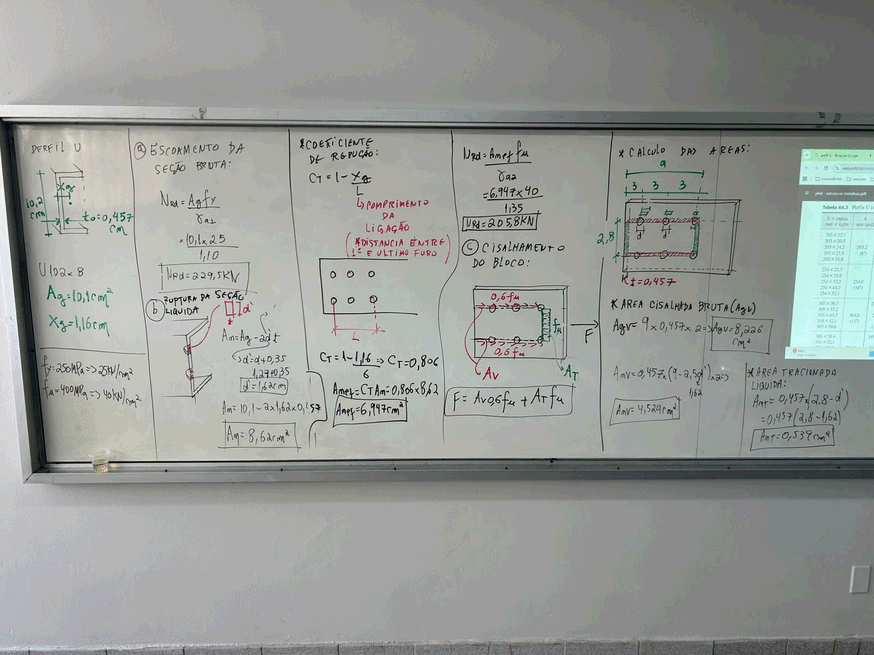 PERFIL U
10,2
cm
xg
to=0,457
cm
U102x8
Ag=10,1cm²
Xg=1,16cm
fy=250MPa=>25kN/cm²
fu=400MPa=>40kN/cm²
a) ESCOAMENTO DA
SEÇÃO BRUTA:
NRd=Agfy
γa1
=10,1x25
1,10
NRd=229,5KN
b) RUPTURA DA SEÇÃO
LIQUIDA
d'
An=Ag-2d't
d'=d+0,35
1,27+0,35
d'=1,62cm
An=10,1-2x1,62x0,457
An=8,62cm²
*COEFICIENTE
DE REDUÇÃO:
CT=1-xg
L
COMPRIMENTO
DA
LIGAÇÃO
(*DISTANCIA ENTRE
1º E ULTIMO FURO)
L
CT=1-1,16=>CT=0,806
6
Anef=CTAn=0,806x8,62
Anef=6,947cm²
NRd=Anef fu
γa2
=6,947x40
1,35
NRd=205,8KN
c) CISALHAMENTO
DO BLOCO:
0,6fu
fu
F
0,6fu
AV
AT
F=AV0,6fu+ATfu
*CALCULO DAS AREAS:
a
3 3 3
d' d'
2,8
t=0,457
*AREA CISALHADA BRUTA(Agv)
Agv=9x0,457x2=>Agv=8,226
cm²
Anv=0,457x(9-2,5d')x2=>
1,62
Anv=4,524cm²
*AREA TRACIONADA
LIQUIDA:
Ant=0,457x(2,8-d')
=0,457(2,8-1,62)
Ant=0,539cm²